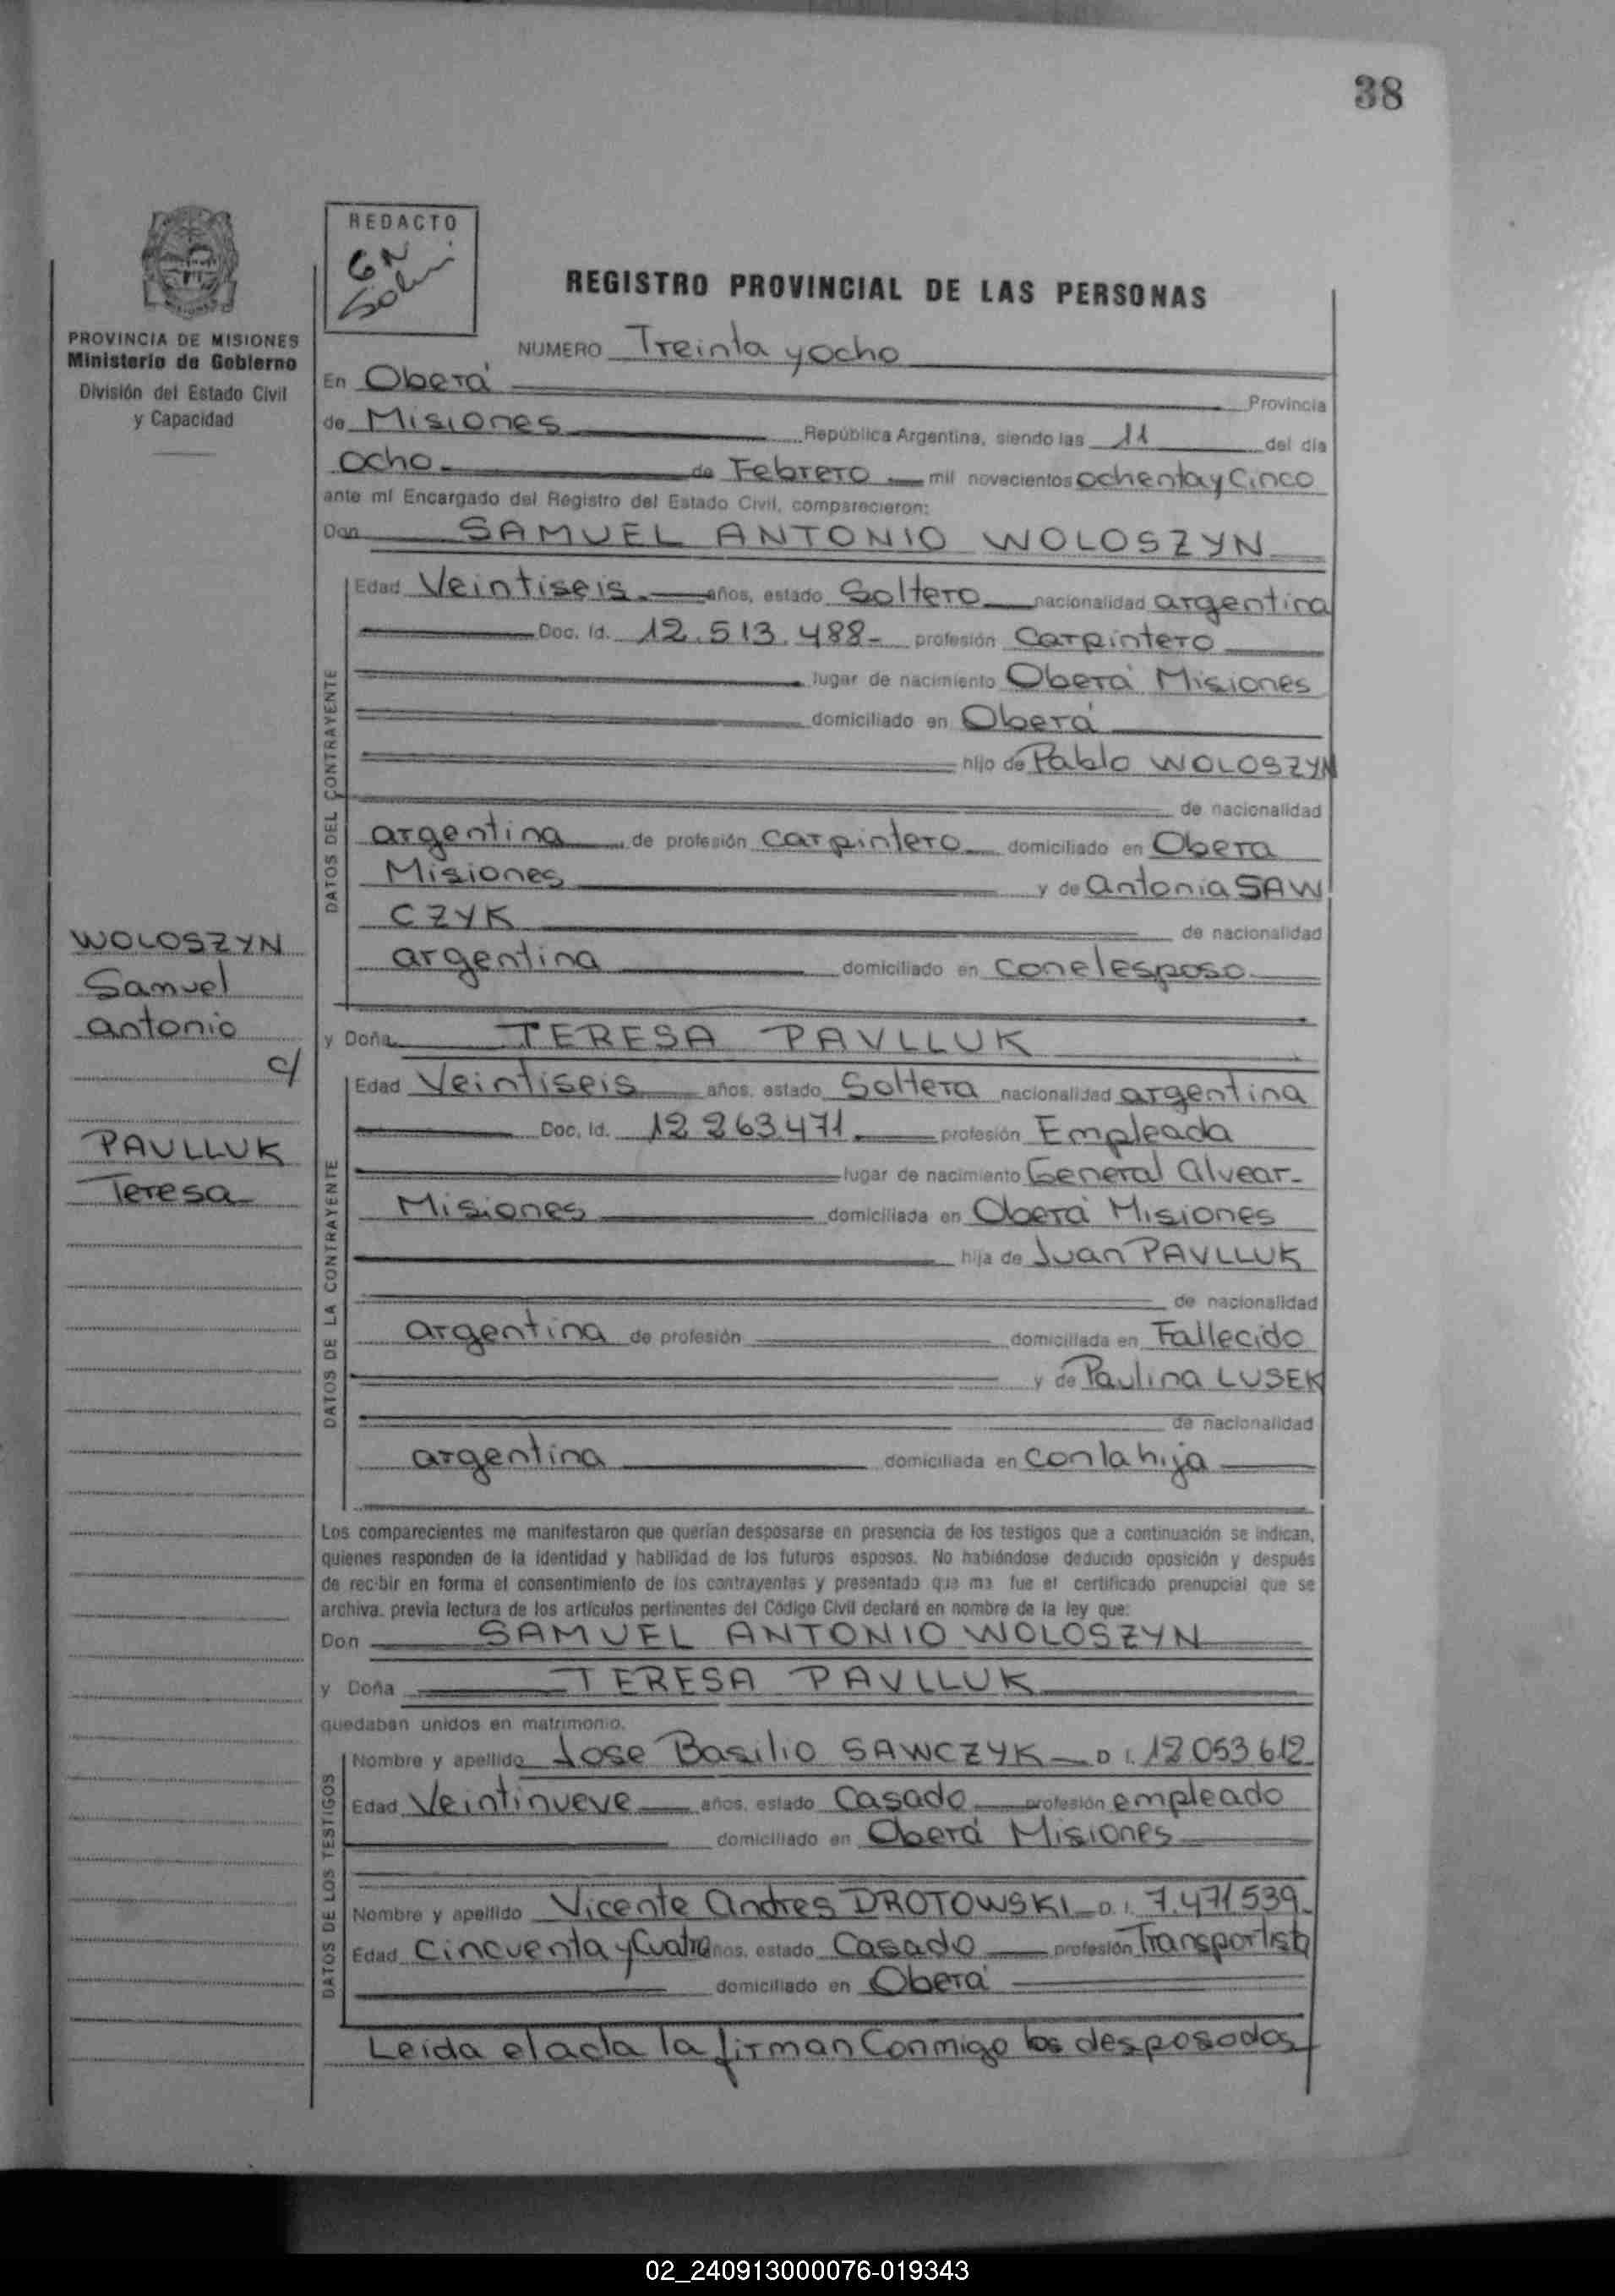 38
REDACTO
GN
REGISTRO PROVINCIAL DE LAS PERSONAS
PROVINCIA DE MISIONES
Ministerio de Gobierno
División del Estado Civil
y Capacidad
NUMERO Treinta y ocho
En Oberá Provincia
de Misiones República Argentina, siendo las 11 del día
ocho de Febrero mil novecientos ochenta y Cinco
ante mí Encargado del Registro del Estado Civil, comparecieron:
Don SAMUEL ANTONIO WOLOSZYN
DATOS DEL CONTRAYENTE
Edad Veintiseis años, estado Soltero nacionalidad argentina
Doc. Id. 12.513.488- profesión Carpintero
lugar de nacimiento Oberá Misiones
domiciliado en Oberá
hijo de Pablo WOLOSZYN
de nacionalidad
argentina de profesión carpintero domiciliado en Obera
Misiones y de Antonia SAW
CZYK de nacionalidad
argentina domiciliado en con el esposo
WOLOSZYN
Samuel
Antonio
c/
PAVLLUK
Teresa
y Doña TERESA PAVLLUK
DATOS DE LA CONTRAYENTE
Edad Veintiseis años, estado Soltera nacionalidad argentina
Doc. Id. 12 263.471 profesión Empleada
lugar de nacimiento General Alvear-
Misiones domiciliada en Oberá Misiones
hija de Juan PAVLLUK
de nacionalidad
argentina de profesión domiciliada en Fallecido
y de Paulina LUSEK
de nacionalidad
argentina domiciliada en con la hija
Los comparecientes me manifestaron que querían desposarse en presencia de los testigos que a continuación se indican,
quienes responden de la identidad y habilidad de los futuros esposos. No habiéndose deducido oposición y después
de recibir en forma el consentimiento de los contrayentes y presentado que me fue el certificado prenupcial que se
archiva, previa lectura de los artículos pertinentes del Código Civil declaré en nombre de la ley que:
Don SAMUEL ANTONIO WOLOSZYN
y Doña TERESA PAVLLUK
quedaban unidos en matrimonio.
DATOS DE LOS TESTIGOS
Nombre y apellido Jose Basilio SAWCZYK D.I. 12 053 612
Edad Veintinueve años, estado Casado profesión empleado
domiciliado en Oberá Misiones
Nombre y apellido Vicente Andres DROTOWSKI D.I. 7.471539
Edad Cincuenta y Cuatro años, estado Casado profesión Transportista
domiciliado en Oberá
Leida el acta la firman Conmigo los desposados
02_240913000076-019343